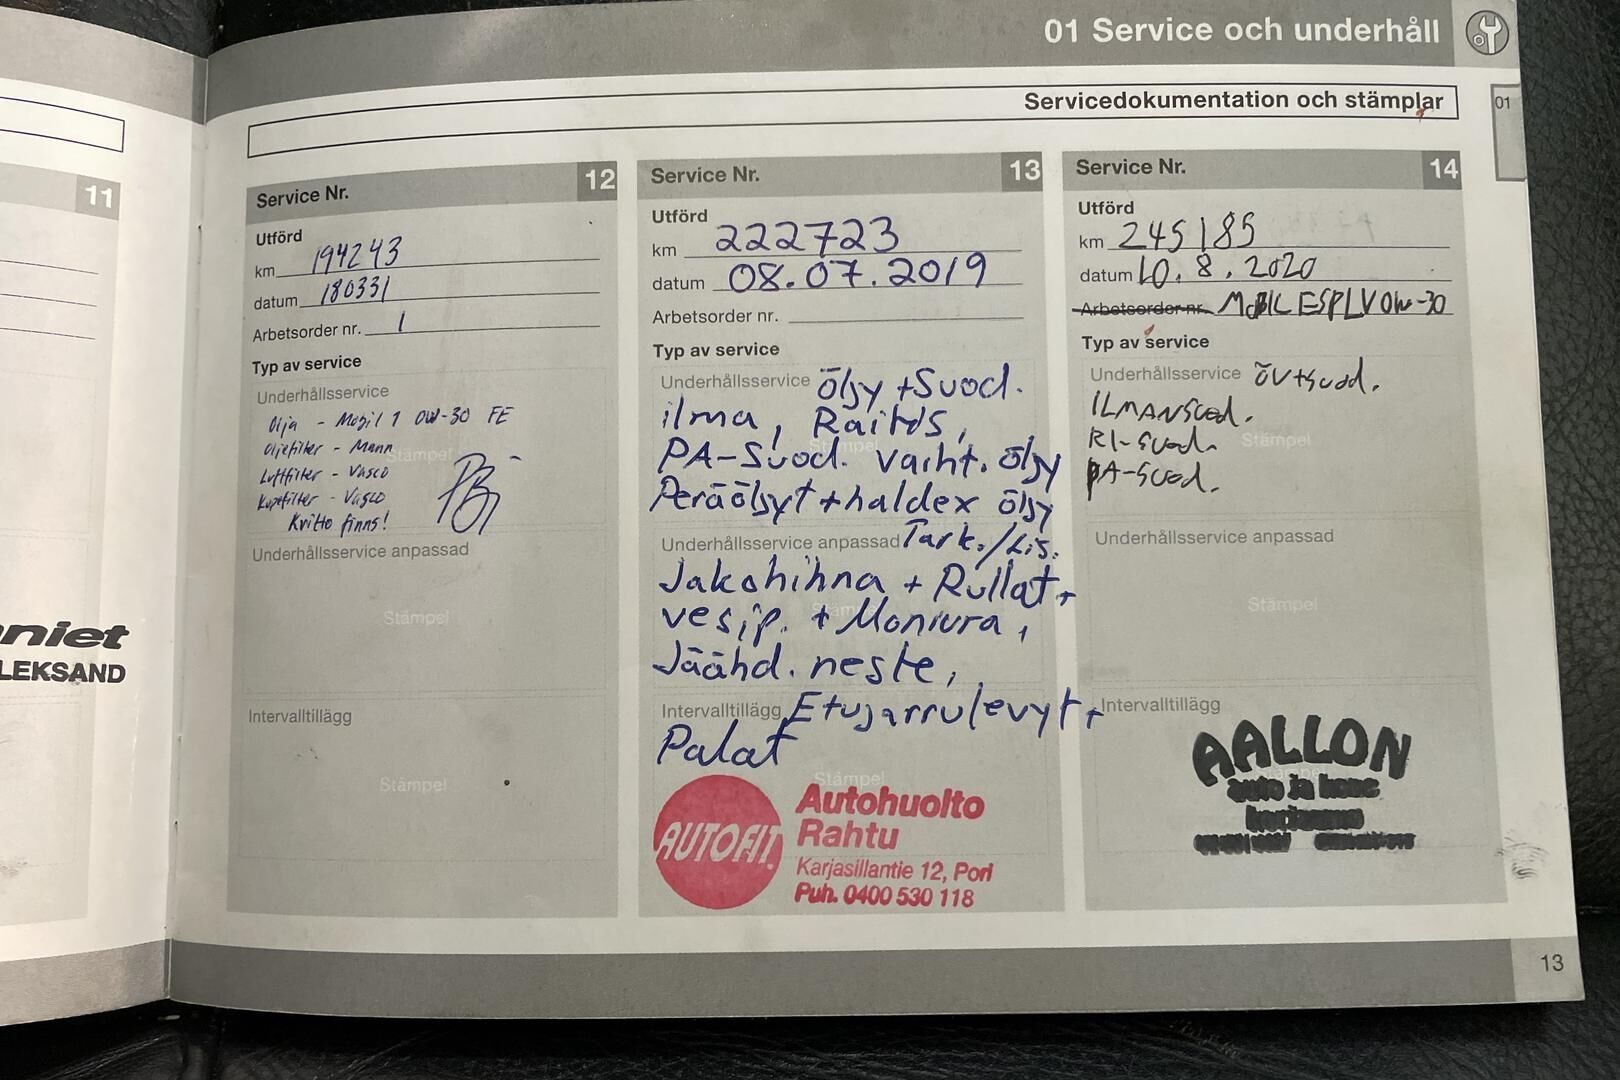 01 Service och underhåll
Servicedokumentation och stämplar
01
11
niet
LEKSAND
Service Nr. 12
Utförd
km 194243
datum 180331
Arbetsorder nr. 1
Typ av service
Underhållsservice
Olja - Mobil 1 0W-30 FE
Oljefilter - Mann
Stämpel
Luftfilter - Vasco
Kupefilter - Vasco
Kvitto finns!
Underhållsservice anpassad
Stämpel
Intervalltillägg
Stämpel
Service Nr. 13
Utförd
km 222723
datum 08.07.2019
Arbetsorder nr.
Typ av service
Underhållsservice öljy + Suod.
ilma, Raitis,
Stämpel
PA-Suod. Vaiht. öljy
Peräöljyt + haldex öljy
Underhållsservice anpassad Tark./Lis.
Jakohihna + Rullat +
Stämpel
vesip. + Moniura,
Jäähd. neste,
Intervalltillägg Etujarrulevyt +
Palat
Stämpel
AUTOFIT
Autohuolto
Rahtu
Karjasillantie 12, Pori
Puh. 0400 530 118
Service Nr. 14
Utförd
km 245185
datum 10.8.2020
Arbetsorder nr. MOBIL ESP LV 0W-30
Typ av service
Underhållsservice ÖV+suod.
ILMANSUOD.
RI-SUOD.
Stämpel
PA-SUOD.
Underhållsservice anpassad
Stämpel
Intervalltillägg
AALLON
Stämpel
auto ja kone
korjaamo
13